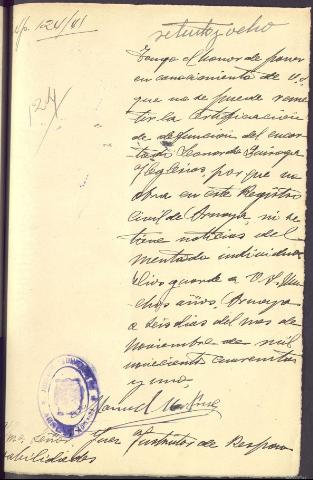 setenta y ocho
124/41
124
Tengo el honor de poner
en conocimiento de V.S.
que no se puede remi
tir la Certificación
de defunción del encar
tado Leonardo Quiroga
Yglesias, por que no
obra en este Registro
Civil de, ni se
tiene noticias del
mentado individuo.
Dios guarde a V.S. mu
chos años
a seis días del mes de
Noviembre de mil
novecientos cuarenta
y uno.
Manuel
Señor Juez Instructor de Respon
sabilidades